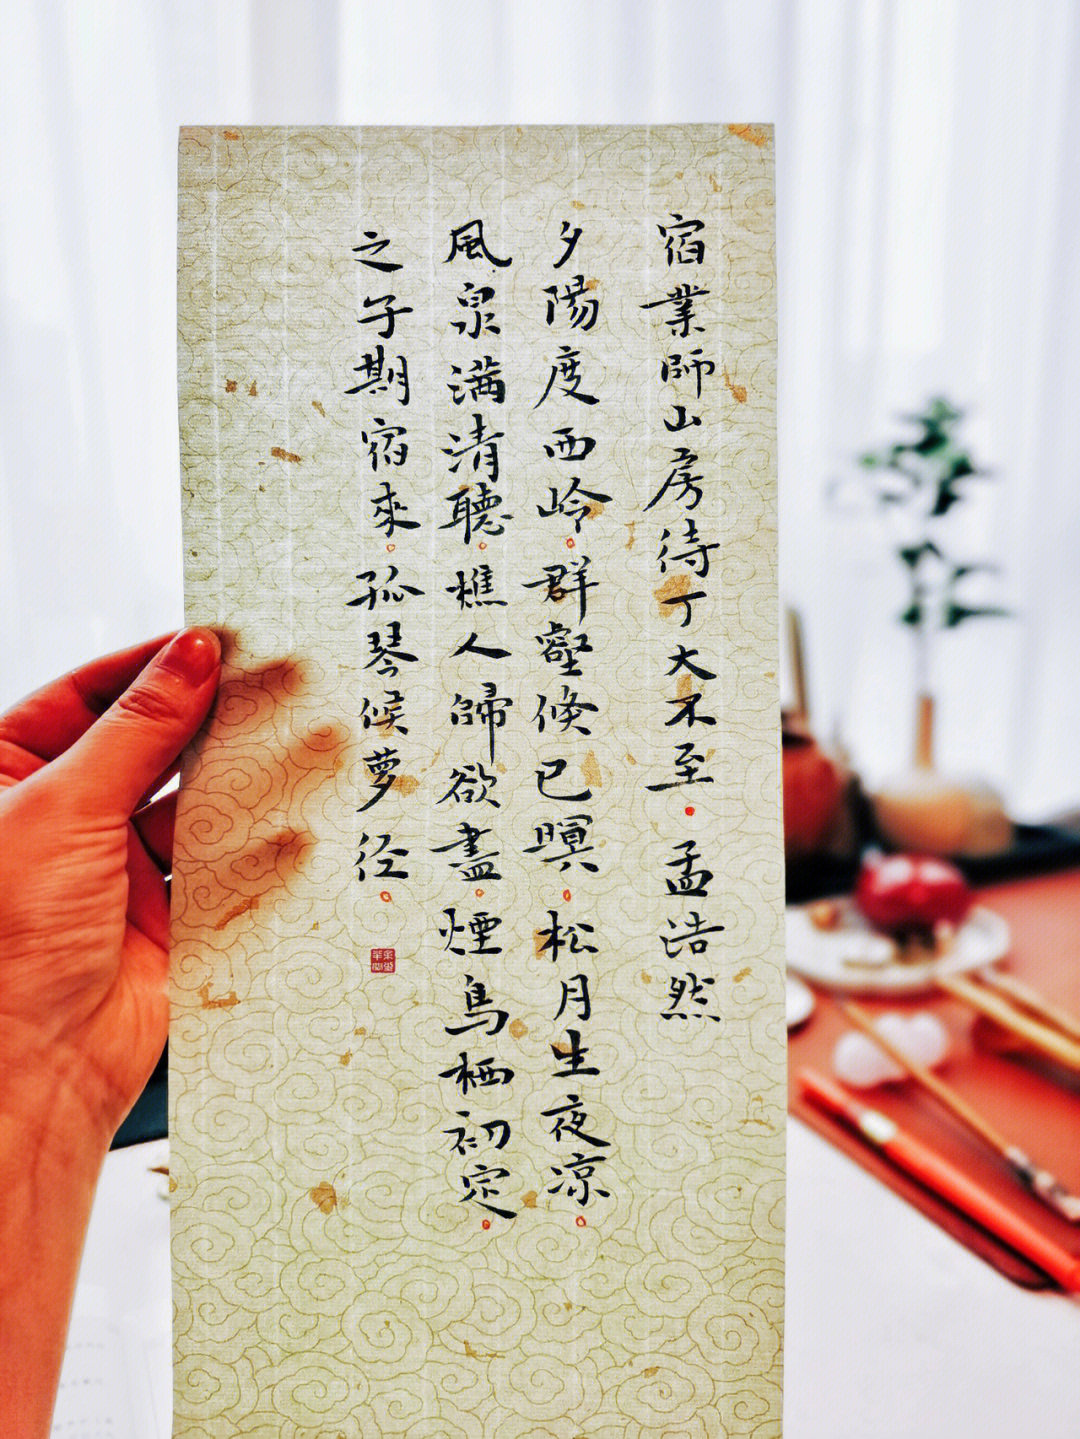 宿業師山房待丁大不至·孟浩然
夕陽度西岭。群壑倏已暝。松月生夜凉。
風泉满清聽。樵人歸欲盡。煙鳥栖初定。
之子期宿來。孤琴候萝径。